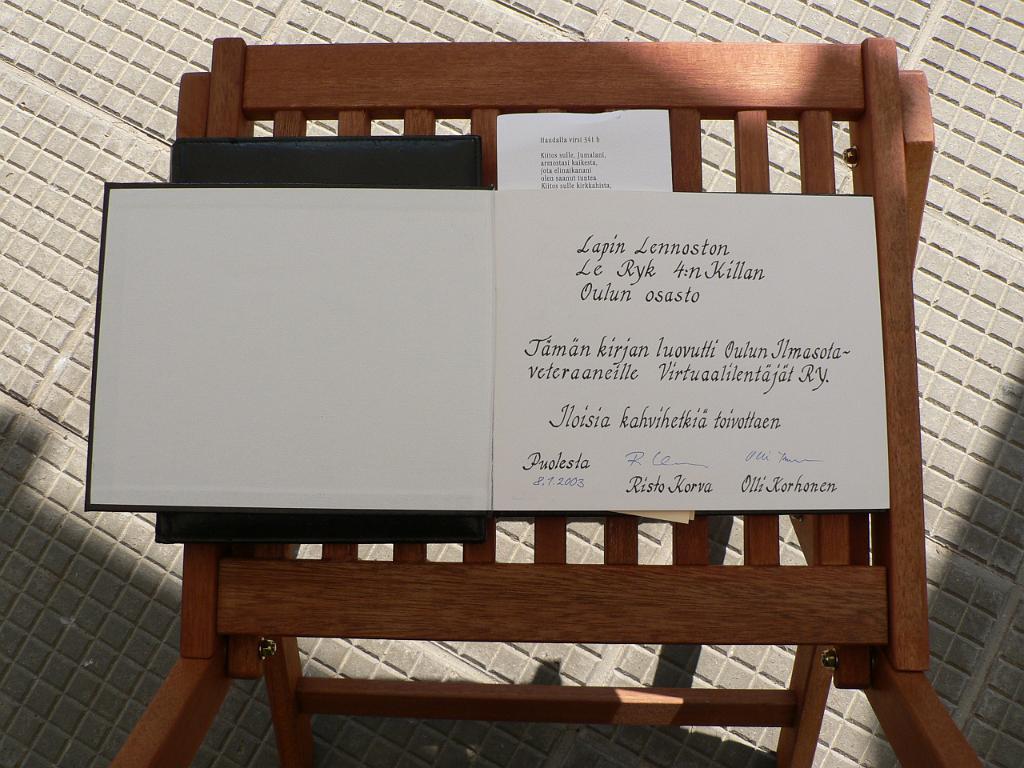 Haudalla virsi 341 b
Kiitos sulle, Jumalani,
armostasi kaikesta,
jota elinaikanani
olen saanut tuntea.
Kiitos sulle kirkkahista,
Lapin Lennoston
Le Ryk 4:n Killan
Oulun osasto
Tämän kirjan luovutti Oulun Ilmasota-
veteraaneille Virtuaalilentäjät RY.
Iloisia kahvihetkiä toivottaen
Puolesta
8.1.2003
Risto Korva Olli Korhonen